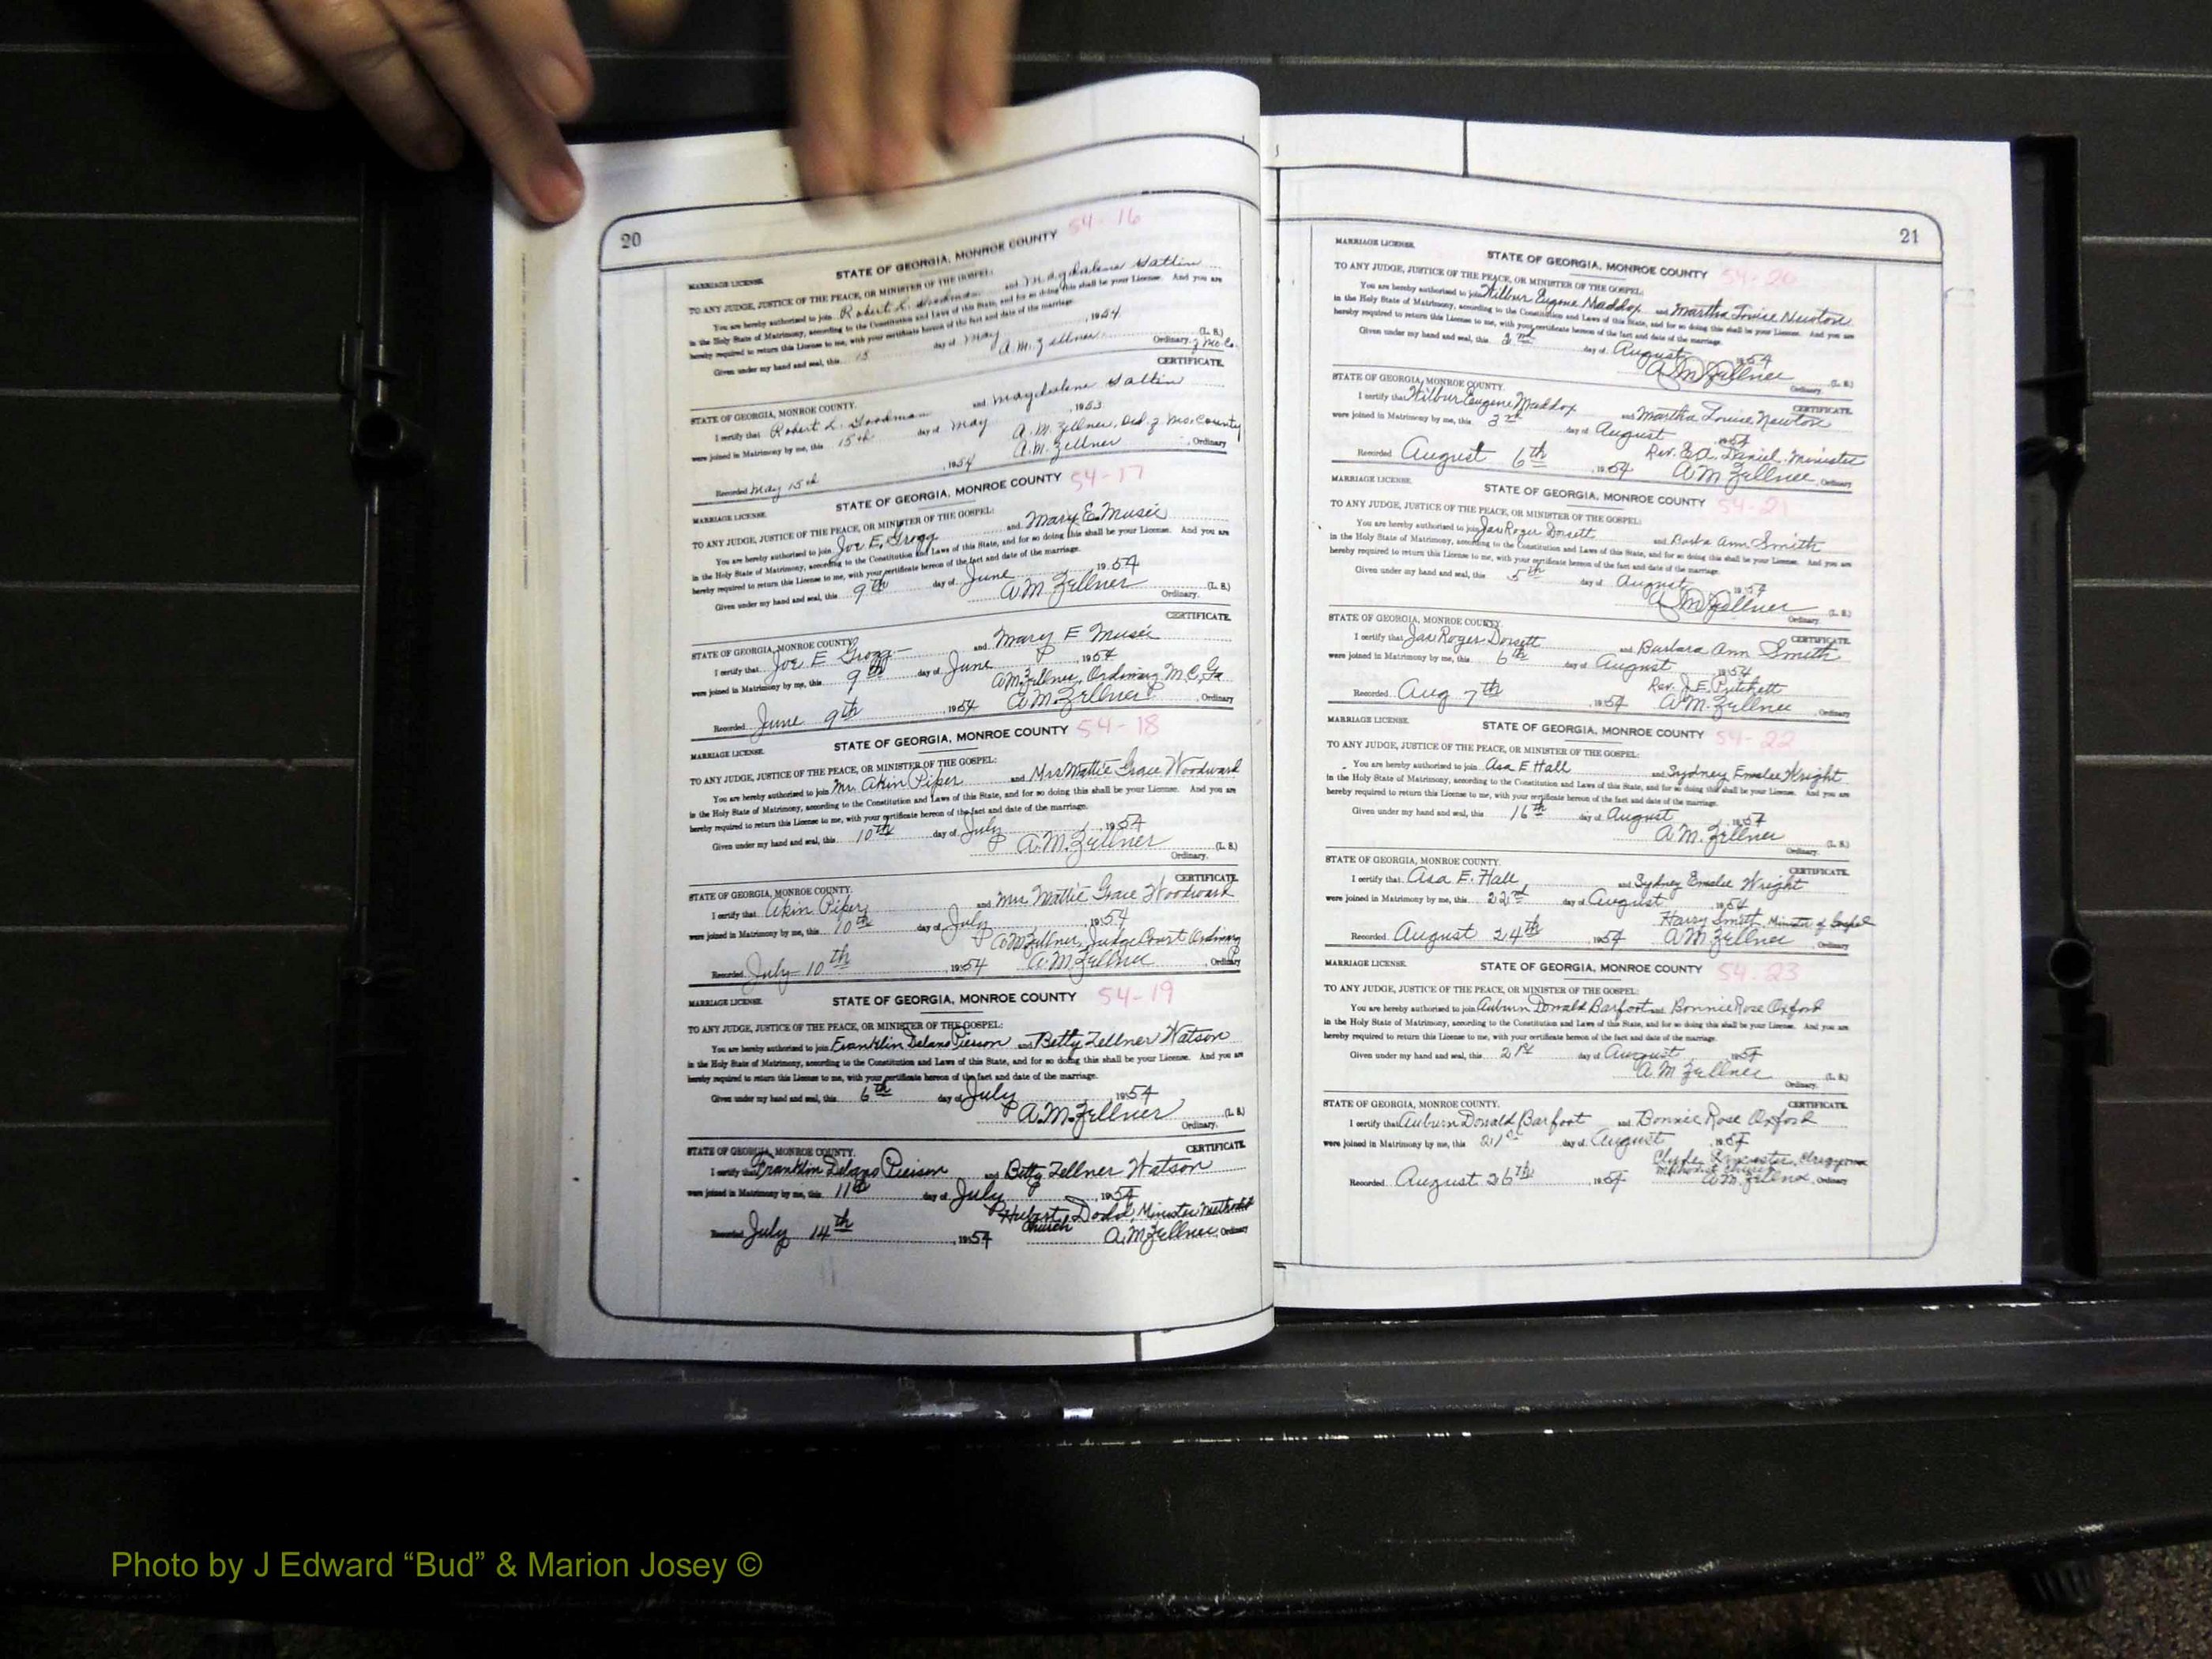 20
54-16
STATE OF GEORGIA, MONROE COUNTY
MARRIAGE LICENSE.
TO ANY JUDGE, JUSTICE OF THE PEACE, OR MINISTER OF THE GOSPEL:
You are hereby authorized to join Robert L. Goodman and Magdalene Gatlin
in the Holy State of Matrimony, according to the Constitution and Laws of this State, and for so doing this shall be your License. And you are
hereby required to return this License to me, with your certificate hereon of the fact and date of the marriage.
Given under my hand and seal, this 15 day of May, 1954
A.M. Zellner (L. S.)
Ordinary. of Mo. Co.
CERTIFICATE.
STATE OF GEORGIA, MONROE COUNTY.
I certify that Robert L. Goodman and Magdalene Gatlin
were joined in Matrimony by me, this 15th day of May, 1953
A. M. Zellner, Ord. of Mo. County
Recorded May 15th, 1954 A.M. Zellner, Ordinary
54-17
STATE OF GEORGIA, MONROE COUNTY
MARRIAGE LICENSE.
TO ANY JUDGE, JUSTICE OF THE PEACE, OR MINISTER OF THE GOSPEL:
You are hereby authorized to join Joe E. Grogg and Mary E. Musie
in the Holy State of Matrimony, according to the Constitution and Laws of this State, and for so doing this shall be your License. And you are
hereby required to return this License to me, with your certificate hereon of the fact and date of the marriage.
Given under my hand and seal, this 9th day of June, 1954
A M Zellner (L. S.)
Ordinary.
CERTIFICATE.
STATE OF GEORGIA, MONROE COUNTY.
I certify that Joe E Grogg and Mary E Musie
were joined in Matrimony by me, this 9th day of June, 1954
A M Zellner, Ordinary M.C, Ga
Recorded June 9th, 1954 A M. Zellner, Ordinary
54-18
STATE OF GEORGIA, MONROE COUNTY
MARRIAGE LICENSE.
TO ANY JUDGE, JUSTICE OF THE PEACE, OR MINISTER OF THE GOSPEL:
You are hereby authorized to join Mr. Akin Piper and Mrs Mattie Grace Woodward
in the Holy State of Matrimony, according to the Constitution and Laws of this State, and for so doing this shall be your License. And you are
hereby required to return this License to me, with your certificate hereon of the fact and date of the marriage.
Given under my hand and seal, this 10th day of July, 1954
A. M. Zellner (L. S.)
Ordinary.
CERTIFICATE.
STATE OF GEORGIA, MONROE COUNTY.
I certify that Akin Piper and Mrs Mattie Grace Woodward
were joined in Matrimony by me, this 10th day of July, 1954
A M Zellner, Judge Court Ordinary
Recorded July 10th, 1954 A. M. Zellner, Ordinary
54-19
STATE OF GEORGIA, MONROE COUNTY
MARRIAGE LICENSE.
TO ANY JUDGE, JUSTICE OF THE PEACE, OR MINISTER OF THE GOSPEL:
You are hereby authorized to join Franklin Delano Pierson and Betty Zellner Watson
in the Holy State of Matrimony, according to the Constitution and Laws of this State, and for so doing this shall be your License. And you are
hereby required to return this License to me, with your certificate hereon of the fact and date of the marriage.
Given under my hand and seal, this 6th day of July, 1954
A. M. Zellner (L. S.)
Ordinary.
CERTIFICATE.
STATE OF GEORGIA, MONROE COUNTY.
I certify that Franklin Delano Pierson and Betty Zellner Watson
were joined in Matrimony by me, this 11th day of July, 1954
Hubert Dodd, Minister Methodist
Church
Recorded July 14th, 1954 A. M Zellner, Ordinary
21
MARRIAGE LICENSE.
STATE OF GEORGIA, MONROE COUNTY 54-20
TO ANY JUDGE, JUSTICE OF THE PEACE, OR MINISTER OF THE GOSPEL:
You are hereby authorized to join Wilbur Eugene Maddox and Martha Louise Newton
in the Holy State of Matrimony, according to the Constitution and Laws of this State, and for so doing this shall be your License. And you are
hereby required to return this License to me, with your certificate hereon of the fact and date of the marriage.
Given under my hand and seal, this 2nd day of August, 1954
A M Zellner (L. S.)
Ordinary.
STATE OF GEORGIA, MONROE COUNTY. CERTIFICATE.
I certify that Wilbur Eugene Maddox and Martha Louise Newton
were joined in Matrimony by me, this 3rd day of August, 1954
Rev. E.A. Daniel, Minister
Recorded August 6th, 1954 A M Zellner, Ordinary
MARRIAGE LICENSE.
STATE OF GEORGIA, MONROE COUNTY 54-21
TO ANY JUDGE, JUSTICE OF THE PEACE, OR MINISTER OF THE GOSPEL:
You are hereby authorized to join Jas Roger Dorsett and Barba Ann Smith
in the Holy State of Matrimony, according to the Constitution and Laws of this State, and for so doing this shall be your License. And you are
hereby required to return this License to me, with your certificate hereon of the fact and date of the marriage.
Given under my hand and seal, this 5th day of August, 1954
A M Zellner (L. S.)
Ordinary.
STATE OF GEORGIA, MONROE COUNTY. CERTIFICATE.
I certify that Jas Roger Dorsett and Barbara Ann Smith
were joined in Matrimony by me, this 6th day of August, 1954
Rev. J. E. Pritchett
Recorded Aug 7th, 1954 A. M. Zellner, Ordinary
MARRIAGE LICENSE.
STATE OF GEORGIA, MONROE COUNTY 54-22
TO ANY JUDGE, JUSTICE OF THE PEACE, OR MINISTER OF THE GOSPEL:
You are hereby authorized to join Asa E Hall and Sydney Emslee Wright
in the Holy State of Matrimony, according to the Constitution and Laws of this State, and for so doing this shall be your License. And you are
hereby required to return this License to me, with your certificate hereon of the fact and date of the marriage.
Given under my hand and seal, this 16th day of August, 1954
A. M. Zellner (L. S.)
Ordinary.
STATE OF GEORGIA, MONROE COUNTY. CERTIFICATE.
I certify that Asa E. Hall and Sydney Emslee Wright
were joined in Matrimony by me, this 22nd day of August, 1954
Harry Smith, Minister of Gospel
Recorded August 24th, 1954 A M Zellner, Ordinary
MARRIAGE LICENSE.
STATE OF GEORGIA, MONROE COUNTY 54-23
TO ANY JUDGE, JUSTICE OF THE PEACE, OR MINISTER OF THE GOSPEL:
You are hereby authorized to join Auburn Donald Barfoot and Bonnie Rose Oxford
in the Holy State of Matrimony, according to the Constitution and Laws of this State, and for so doing this shall be your License. And you are
hereby required to return this License to me, with your certificate hereon of the fact and date of the marriage.
Given under my hand and seal, this 21st day of August, 1954
A. M Zellner (L. S.)
Ordinary.
STATE OF GEORGIA, MONROE COUNTY. CERTIFICATE.
I certify that Auburn Donald Barfoot and Bonnie Rose Oxford
were joined in Matrimony by me, this 21st day of August, 1954
Clyde Lancaster, Clergyman
Methodist Church
Recorded August 26th, 1954 A. M. Zellner, Ordinary
Photo by J Edward “Bud” & Marion Josey ©